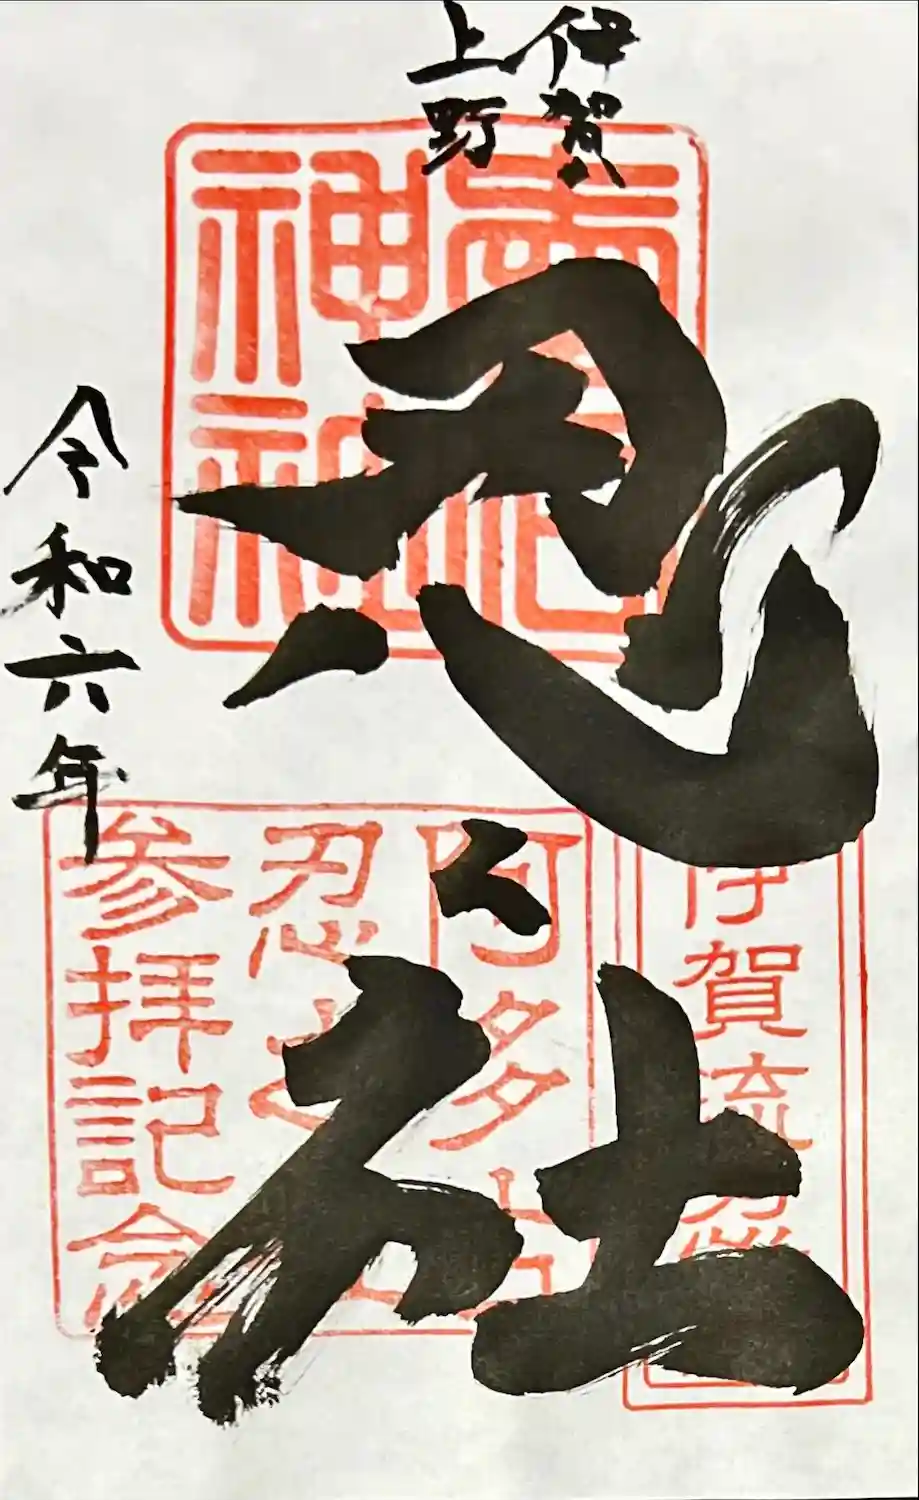 伊賀
上野
忍之社
令和六年
神社
伊賀流
阿多古
忍之社
参拝記念